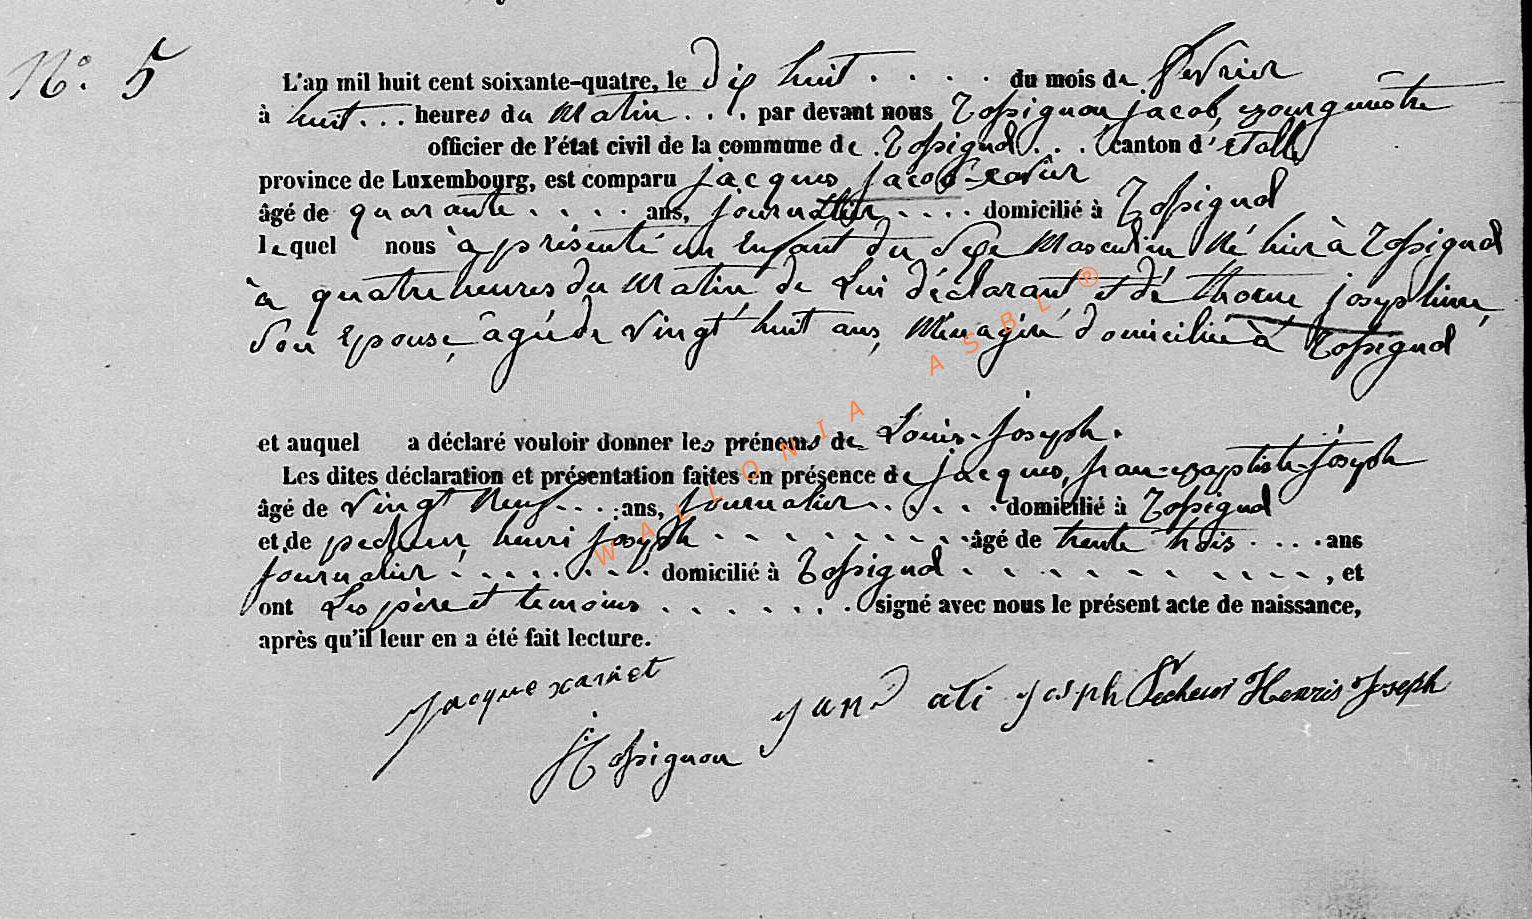 N° 5
L'an mil huit cent soixante-quatre, le dix huit . . . . du mois de février
à huit . . . heures du matin . . . par devant nous Rossignon, jacob, bourgmestre
officier de l'état civil de la commune de . Rossignol . . . canton d'étalle
province de Luxembourg, est comparu jacques jacob-xavier
âgé de quarante . . . . ans, journalier . . . . domicilié à Rossignol
lequel nous à présenté un enfant du sexe masculin né hier à Rossignol
à quatre heures du matin de lui déclarant et de thorne joséphine,
son épouse, âgée de vingt huit ans, ménagère domiciliée à Rossignol
et auquel a déclaré vouloir donner les prénoms de Louis-Joseph.
Les dites déclaration et présentation faites en présence de jacques, jean-baptiste-joseph
âgé de vingt neuf . . . . ans, journalier . . . . . domicilié à Rossignol
et de pecheur, henri joseph . . . . . . . . . âgé de trente trois . . . . ans
journalier . . . . . . . . domicilié à Rossignol . . . . . . . . . . , et
ont les père et témoins . . . . . . . signé avec nous le présent acte de naissance,
après qu'il leur en a été fait lecture.
Jacque xaviet
joseph Pecheur Henris Joseph
J Rossignon
WALLONIA ASBL ®